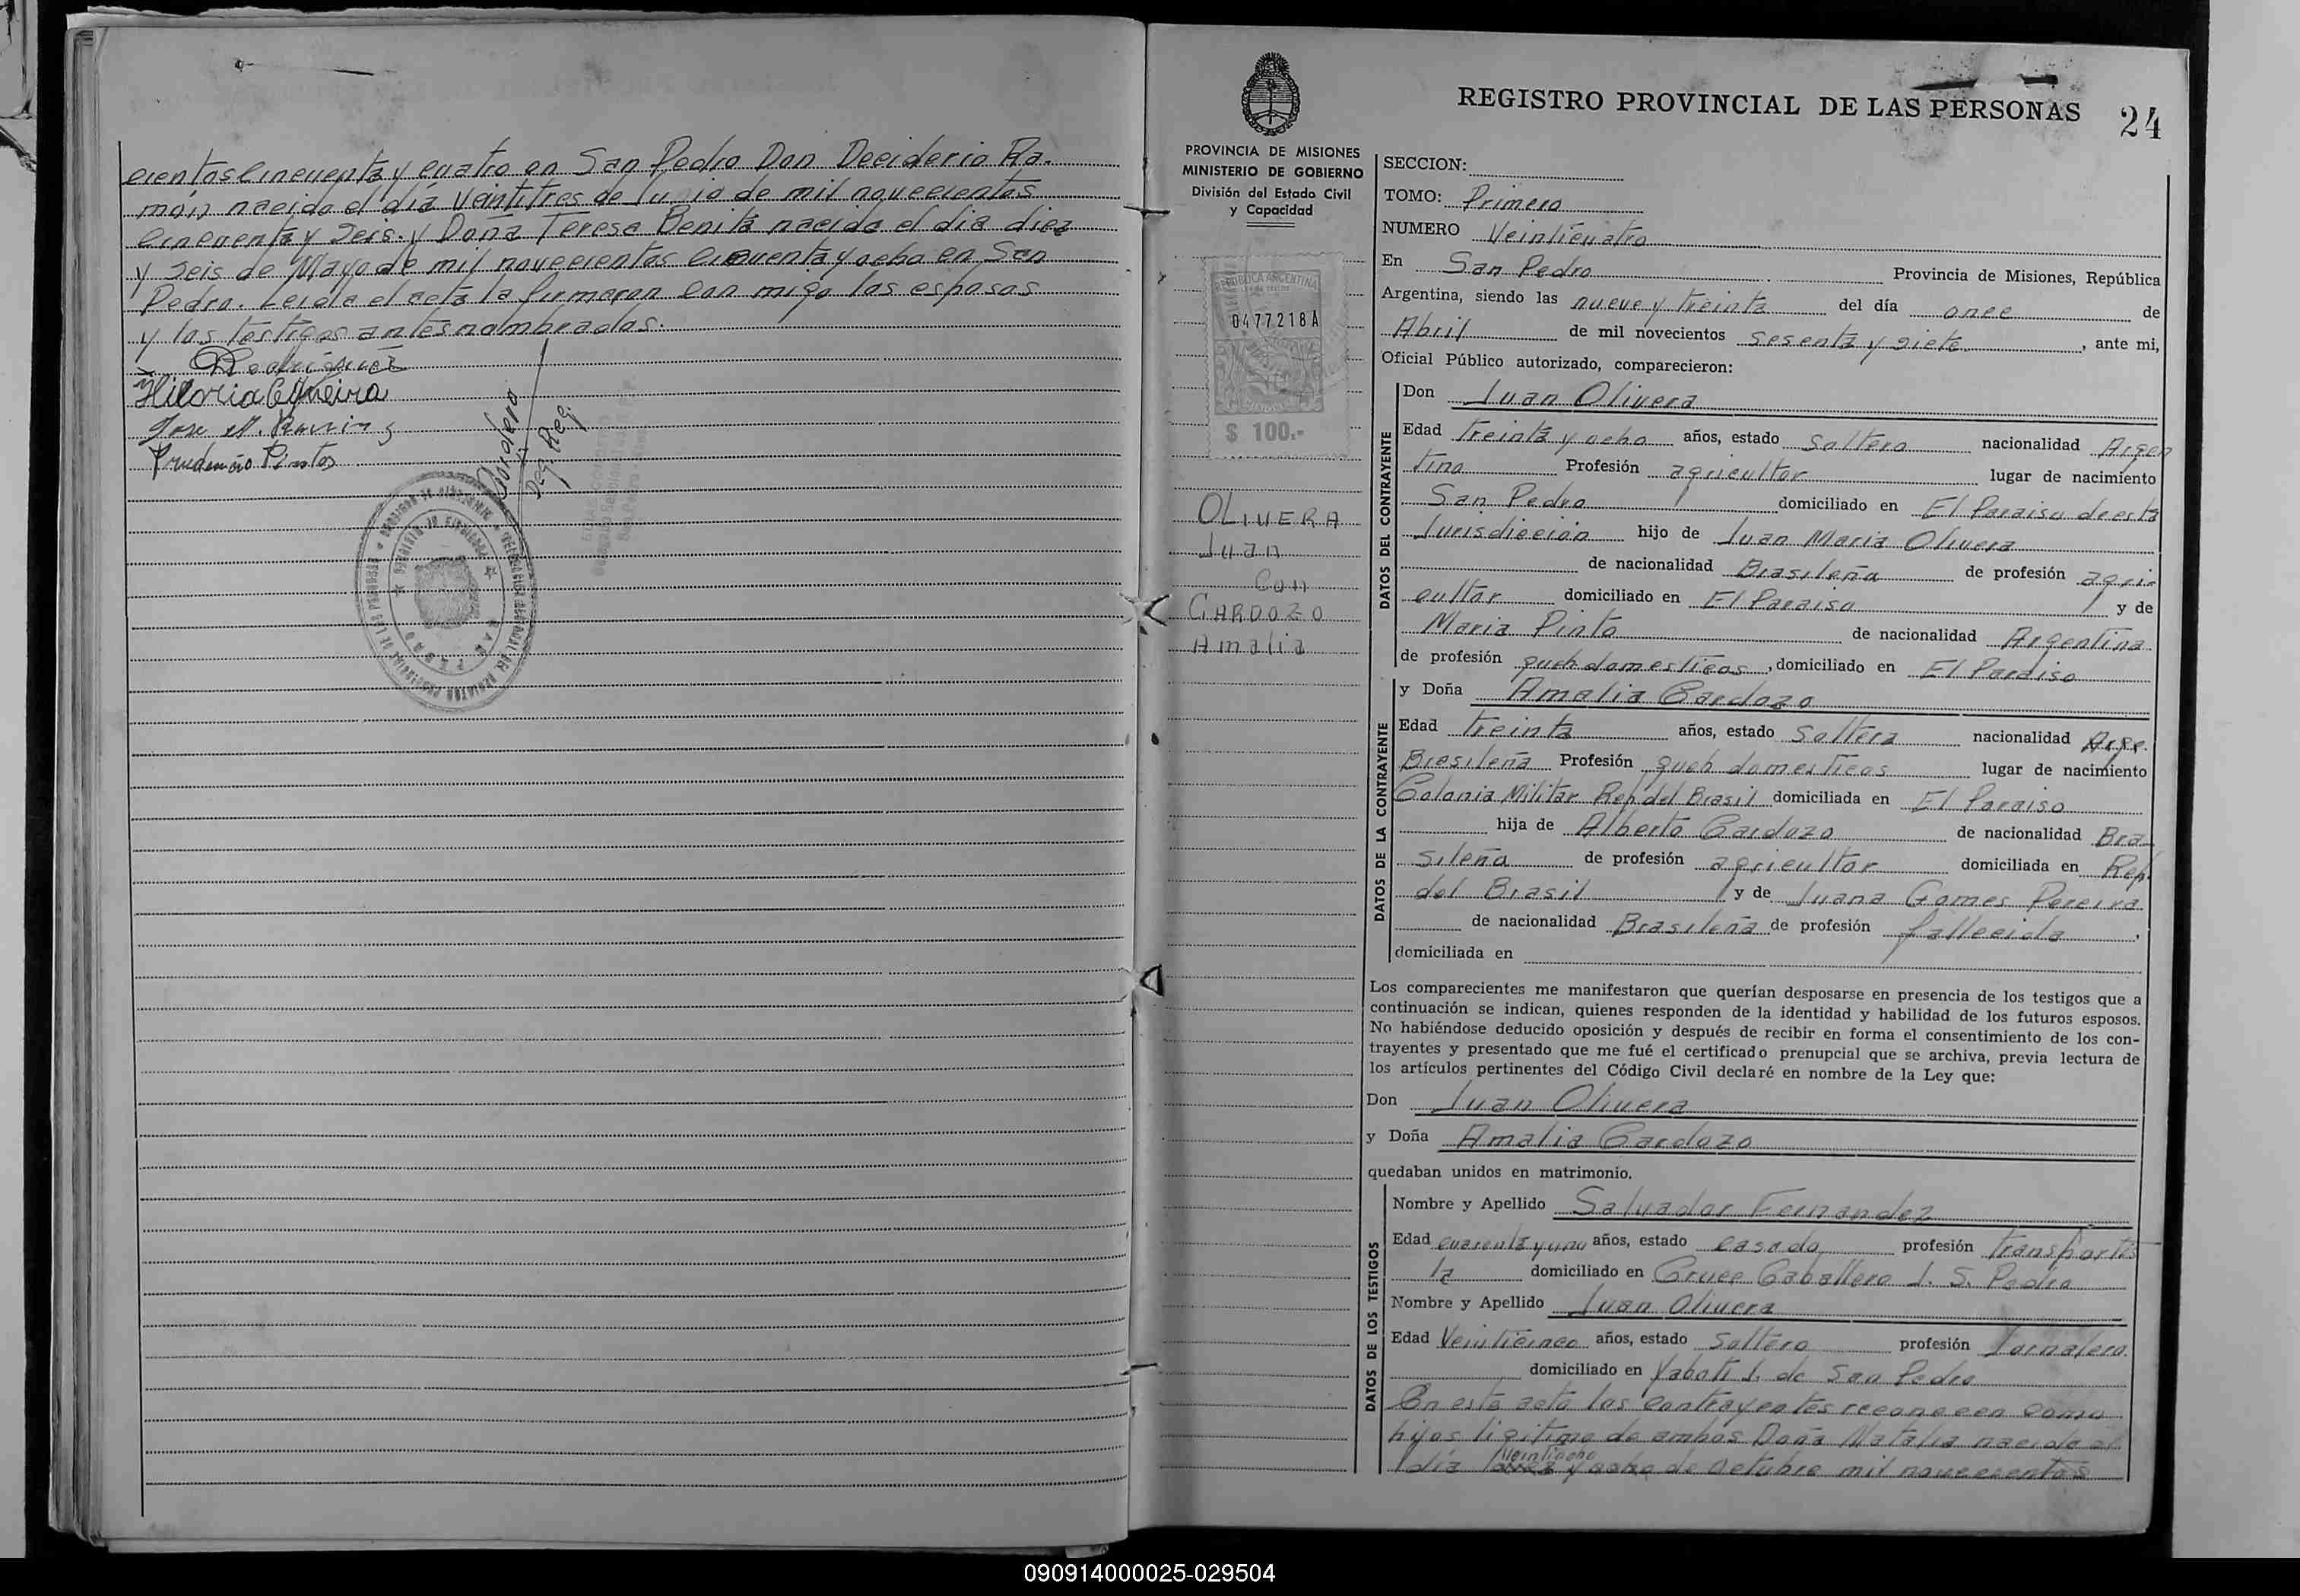 cientos cincuenta y cuatro en San Pedro Don Deciderio Ra-
món nacido el día veintitres de Junio de mil novecientos
cincuenta y seis. y Doña Teresa Benita nacida el dia diez
y seis de Mayo de mil novecientos cincuenta y ocho en San
Pedro. Leida el acta la firmaron con migo los esposos
y los testigos antes nombrados.
Prudencio Pintos
Deg. Reg.
REGISTRO PROVINCIAL DE LAS PERSONAS 24
PROVINCIA DE MISIONES
MINISTERIO DE GOBIERNO
División del Estado Civil
y Capacidad
REPUBLICA ARGENTINA
0477218A
$ 100.-
OLIVERA
Juan
Con
CARDOZO
Amalia
SECCION:
TOMO: Primero
NUMERO Veinticuatro
En San Pedro Provincia de Misiones, República
Argentina, siendo las nueve y treinta del día once de
Abril de mil novecientos sesenta y siete, ante mi,
Oficial Público autorizado, comparecieron:
DATOS DEL CONTRAYENTE
Don Juan Olivera
Edad treinta y ocho años, estado soltero nacionalidad Argen
tina Profesión agricultor lugar de nacimiento
San Pedro domiciliado en El Paraiso de esta
Jurisdicción hijo de Juan Maria Olivera
de nacionalidad Brasileña de profesión agri-
cultor domiciliado en El Paraiso y de
Maria Pinto de nacionalidad Argentina
de profesión queh domesticos, domiciliado en El Paraiso
DATOS DE LA CONTRAYENTE
y Doña Amalia Cardozo
Edad treinta años, estado soltera nacionalidad Arge.
Brasileña Profesión queh domesticos lugar de nacimiento
Colonia Militar Rep del Brasil domiciliada en El Paraiso
hija de Alberto Cardozo de nacionalidad Bra-
sileña de profesión agricultor domiciliada en Rep.
del Brasil y de Juana Gomes Pereira
de nacionalidad Brasileña de profesión fallecida,
domiciliada en
Los comparecientes me manifestaron que querían desposarse en presencia de los testigos que a
continuación se indican, quienes responden de la identidad y habilidad de los futuros esposos.
No habiéndose deducido oposición y después de recibir en forma el consentimiento de los con-
trayentes y presentado que me fué el certificado prenupcial que se archiva, previa lectura de
los artículos pertinentes del Código Civil declaré en nombre de la Ley que:
Don Juan Olivera
y Doña Amalia Cardozo
quedaban unidos en matrimonio.
DATOS DE LOS TESTIGOS
Nombre y Apellido Salvador Fernandez
Edad cuarenta y uno años, estado casado profesión transportis
ta domiciliado en Cruce Caballero J. S. Pedro
Nombre y Apellido Juan Olivera
Edad Veinticinco años, estado soltero profesión Jornalero
domiciliado en Yaboti J. de San Pedro
En este acto los contrayentes reconocen como
hijos ligitimo de ambos Doña Natalia nacida el
Veintiocho
día y ocho de Octubre mil novecientos
090914000025-029504